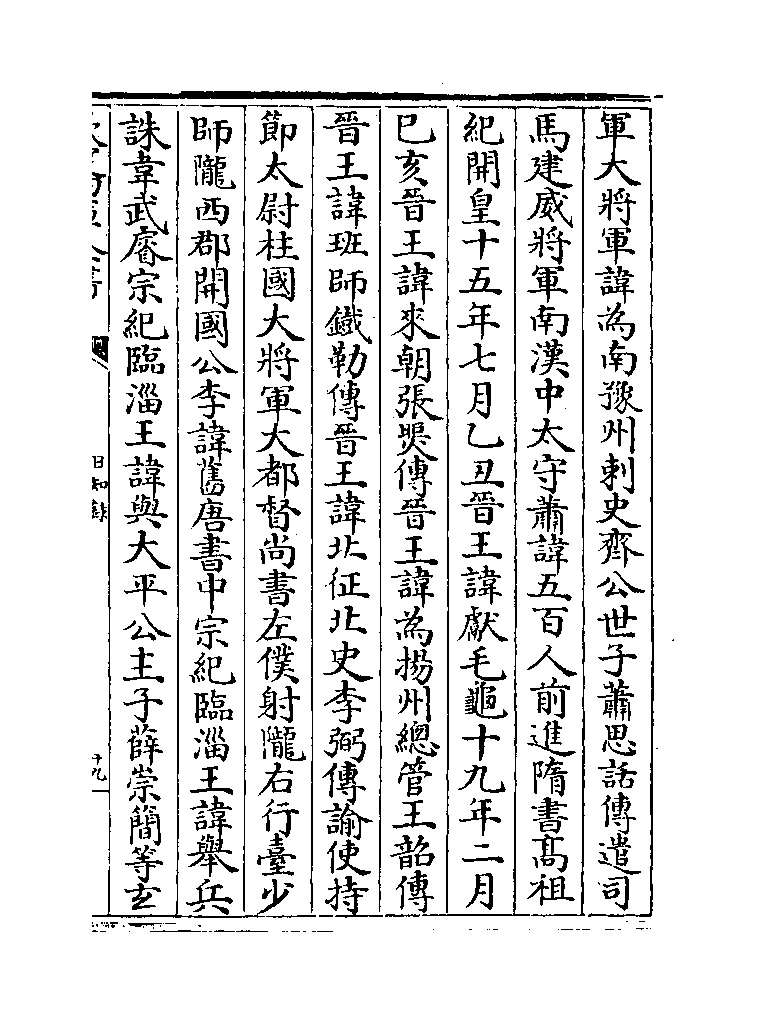 軍大將軍諱為南豫州刺史齊公世子蕭思話傳遣司
馬建威將軍南漢中太守蕭諱五百人前進隋書髙祖
紀開皇十五年七月乙丑晉王諱獻毛龜十九年二月
已亥晉王諱來朝張煚傳晉王諱為揚州總管王韶傳
晉王諱班師鐵勒傳晉王諱北征北史李弼傳諭使持
節太尉柱國大將軍大都督尚書左僕射隴右行臺少
師隴西郡開國公李諱舊唐書中宗紀臨淄王諱舉兵
誅韋武睿宗紀臨淄王諱與大平公主子薛崇簡等玄
日知録
十九